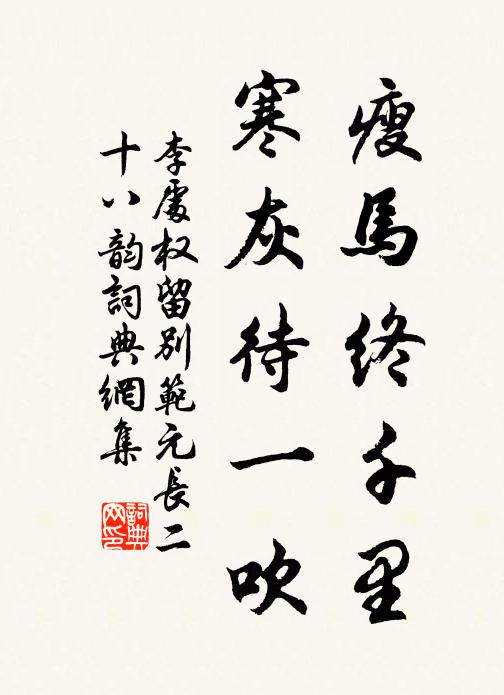 瘦馬終千里
寒灰待一吹
李處权留別範元長二
十八韵詞典網集
詞典网印